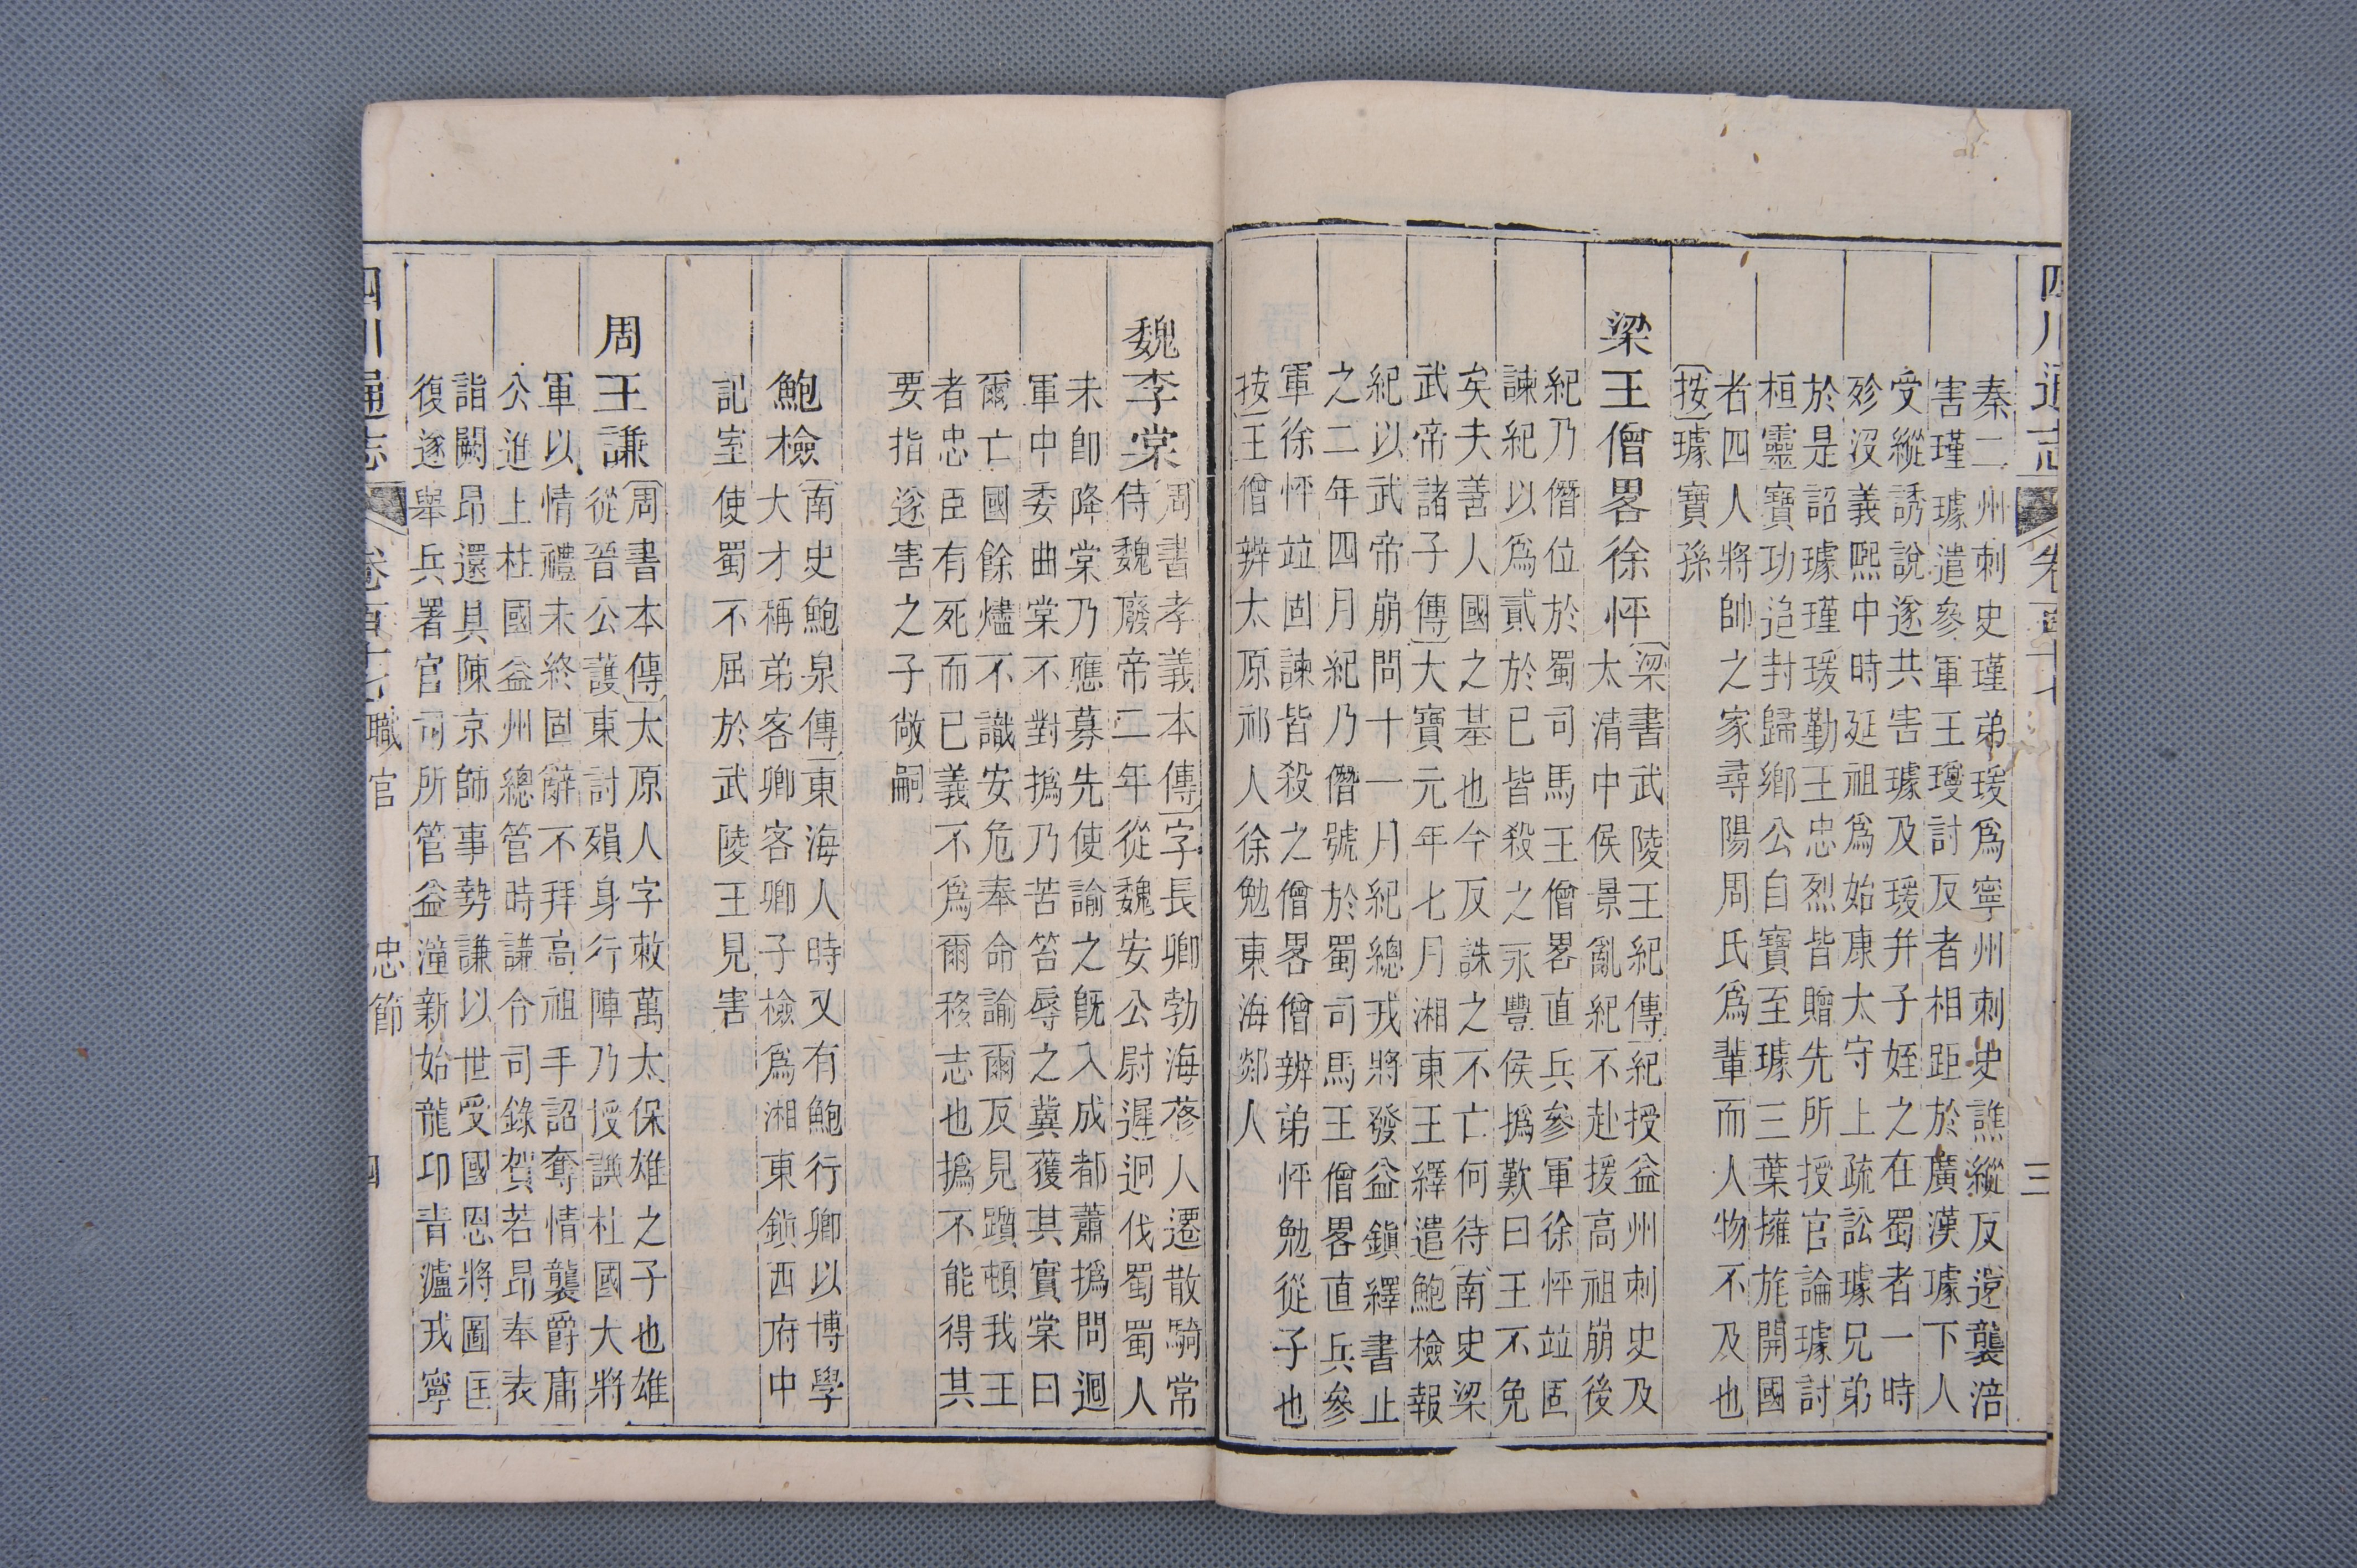 秦二州刺史瑾弟瑗爲寧州刺史譙縱反還襲涪
害瑾璩遣參軍王瓊討反者相距於廣漢璩下人
受縱誘說遂共害璩及瑗并子姪之在蜀者一時
殄沒義熙中時延祖爲始康太守上疏訟璩兄弟
於是詔璩瑾瑗勤王忠烈皆贈先所授官論璩討
桓靈寶功追封歸鄉公自寶至璩三葉擁旄開國
者四人將帥之家尋陽周氏爲輩而人物不及也
按璩寶孫
梁王僧畧徐怦
梁書武陵王紀傳紀授益州刺史及
太清中侯景亂紀不赴援高祖崩後
紀乃僭位於蜀司馬王僧畧直兵參軍徐怦竝固
諫紀以爲貳於己皆殺之永豐侯撝歎曰王不免
矣夫善人國之基也今反誅之不亡何待南史梁
武帝諸子傳大寶元年七月湘東王繹遣鮑檢報
紀以武帝崩問十一月紀總戎將發益鎮繹書止
之二年四月紀乃僭號於蜀司馬王僧畧直兵參
軍徐怦竝固諫皆殺之僧畧僧辨弟怦勉從子也
按王僧辨太原祁人徐勉東海郯人
魏李棠
周書孝義本傳字長卿勃海蓚人遷散騎常
侍魏廢帝二年從魏安公尉遲迥伐蜀蜀人
未卽降棠乃應募先使諭之旣入成都蕭撝問迥
軍中委曲棠不對撝乃苦笞辱之冀獲其實棠曰
爾亡國餘燼不識安危奉命諭爾反見躓頓我王
者忠臣有死而已義不爲爾移志也撝不能得其
要指遂害之子敞嗣
鮑檢
南史鮑泉傳東海人時又有鮑行卿以博學
大才稱弟客卿客卿子檢爲湘東鎭西府中
記室使蜀不屈於武陵王見害
周王謙
周書本傳太原人字敕萬太保雄之子也雄
從晉公護東討殞身行陣乃授謙柱國大將
軍以情禮未終固辭不拜高祖手詔奪情襲爵庸
公進上柱國益州總管時謙令司錄賀若昂奉表
詣闕昂還具陳京師事勢謙以世受國恩將圖匡
復遂舉兵署官司所管益潼新始龍卭青瀘戎寧
職官
忠節
三